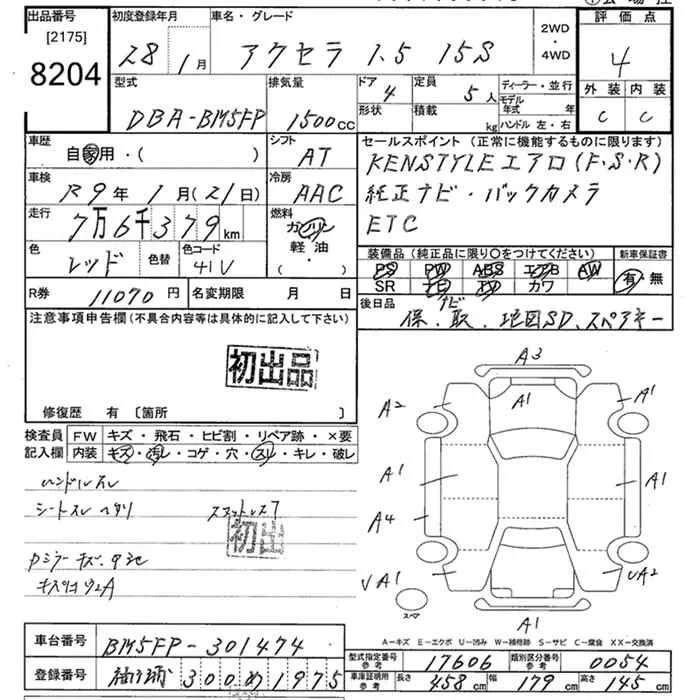 出品番号 初度登録年月 車名・グレード 2WD・4WD 評価点
[2175]
8204 28年1月 アクセラ 1.5 15S 4
型式 排気量 ドア 定員 ディーラー・並行 外装 内装
DBA-BM5FP 1500cc 4 5人 モデル年式 年 C C
形状 積載 kg ハンドル 左・右
車歴 シフト セールスポイント(正常に機能するものに限ります)
自家用・( ) AT KENSTYLEエアロ(F.S.R)
車検 冷房 純正ナビ・バックカメラ
R9年1月(21日) AAC ETC
走行 燃料
7万6千379km ガソリン
軽・油
( )
色 色替 色コード 装備品(純正品に限り○をつけてください) 新車保証書
レッド 41V PS PW ABS エアB AW 有・無
SR ナビ TV カワ
R券 11070円 名変期限 月 日 後日品
ナビ
保.取.地図SD.スペアキー
注意事項申告欄(不具合内容等は具体的に記入して下さい)
初出品
修復歴 有 〔箇所 〕
検査員記入欄 FW キズ・飛石・ヒビ割・リペア跡・×要
内装 キズ・汚レ・コゲ・穴・スレ・キレ・破レ
ハンドルスレ
シートスレ ヘタリ
初出
A3
A1
A2 A1
A1 A1
A4
VA1 UA2
スペア A1
A-キズ E-エクボ U-凹み W-補修跡 S-サビ C-腐食 XX-交換済
車台番号 BM5FP-301474
登録番号 300 1975
型式指定番号 参考 17606 類別区分番号 参考 0054
車庫証明用 参考 長さ 458cm 幅 179cm 高さ 145cm